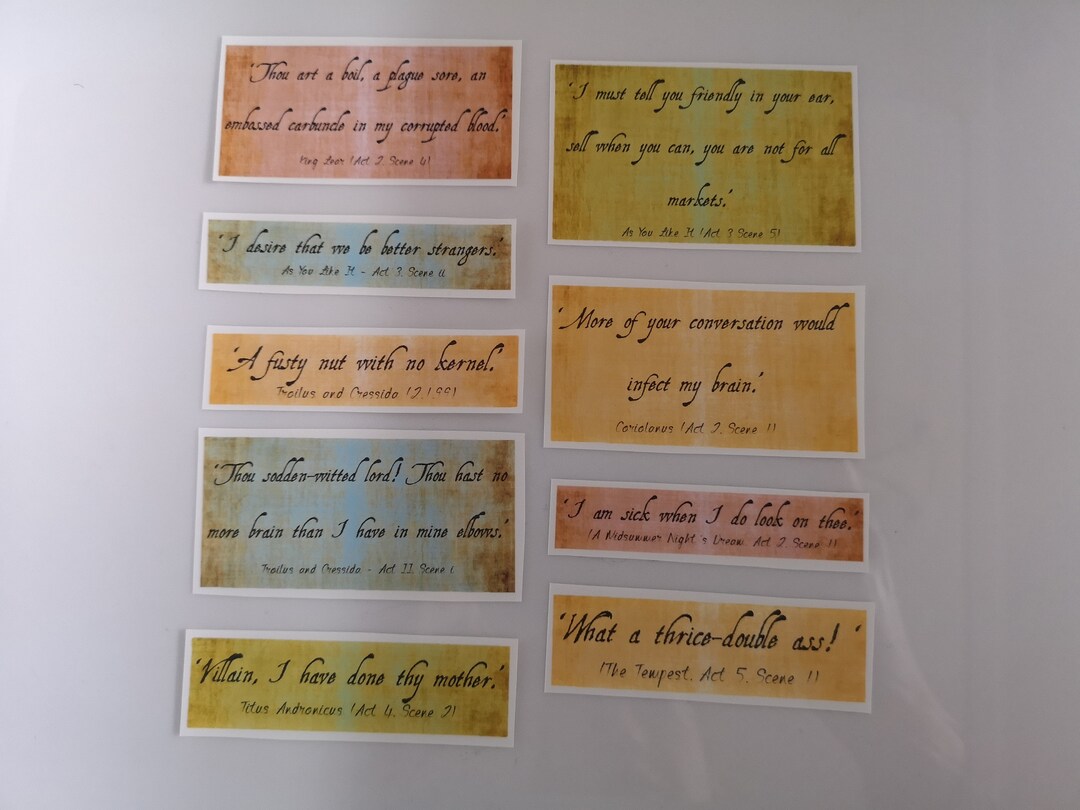 'Thou art a boil, a plague sore, an
embossed carbuncle in my corrupted blood.'
King Lear (Act 2, Scene 4)
'I desire that we be better strangers.'
As You Like It - Act 3, Scene ii
'A fusty nut with no kernel.'
Troilus and Cressida (2.1.99)
'Thou sodden-witted lord! Thou hast no
more brain than I have in mine elbows.'
Troilus and Cressida - Act II, Scene i
'Villain, I have done thy mother.'
Titus Andronicus (Act 4, Scene 2)
'I must tell you friendly in your ear,
sell when you can, you are not for all
markets.'
As You Like It (Act 3 Scene 5)
'More of your conversation would
infect my brain.'
Coriolanus (Act 2, Scene 1)
'I am sick when I do look on thee.'
(A Midsummer Night's Dream, Act 2 Scene 1)
'What a thrice-double ass! '
(The Tempest, Act 5, Scene 1)